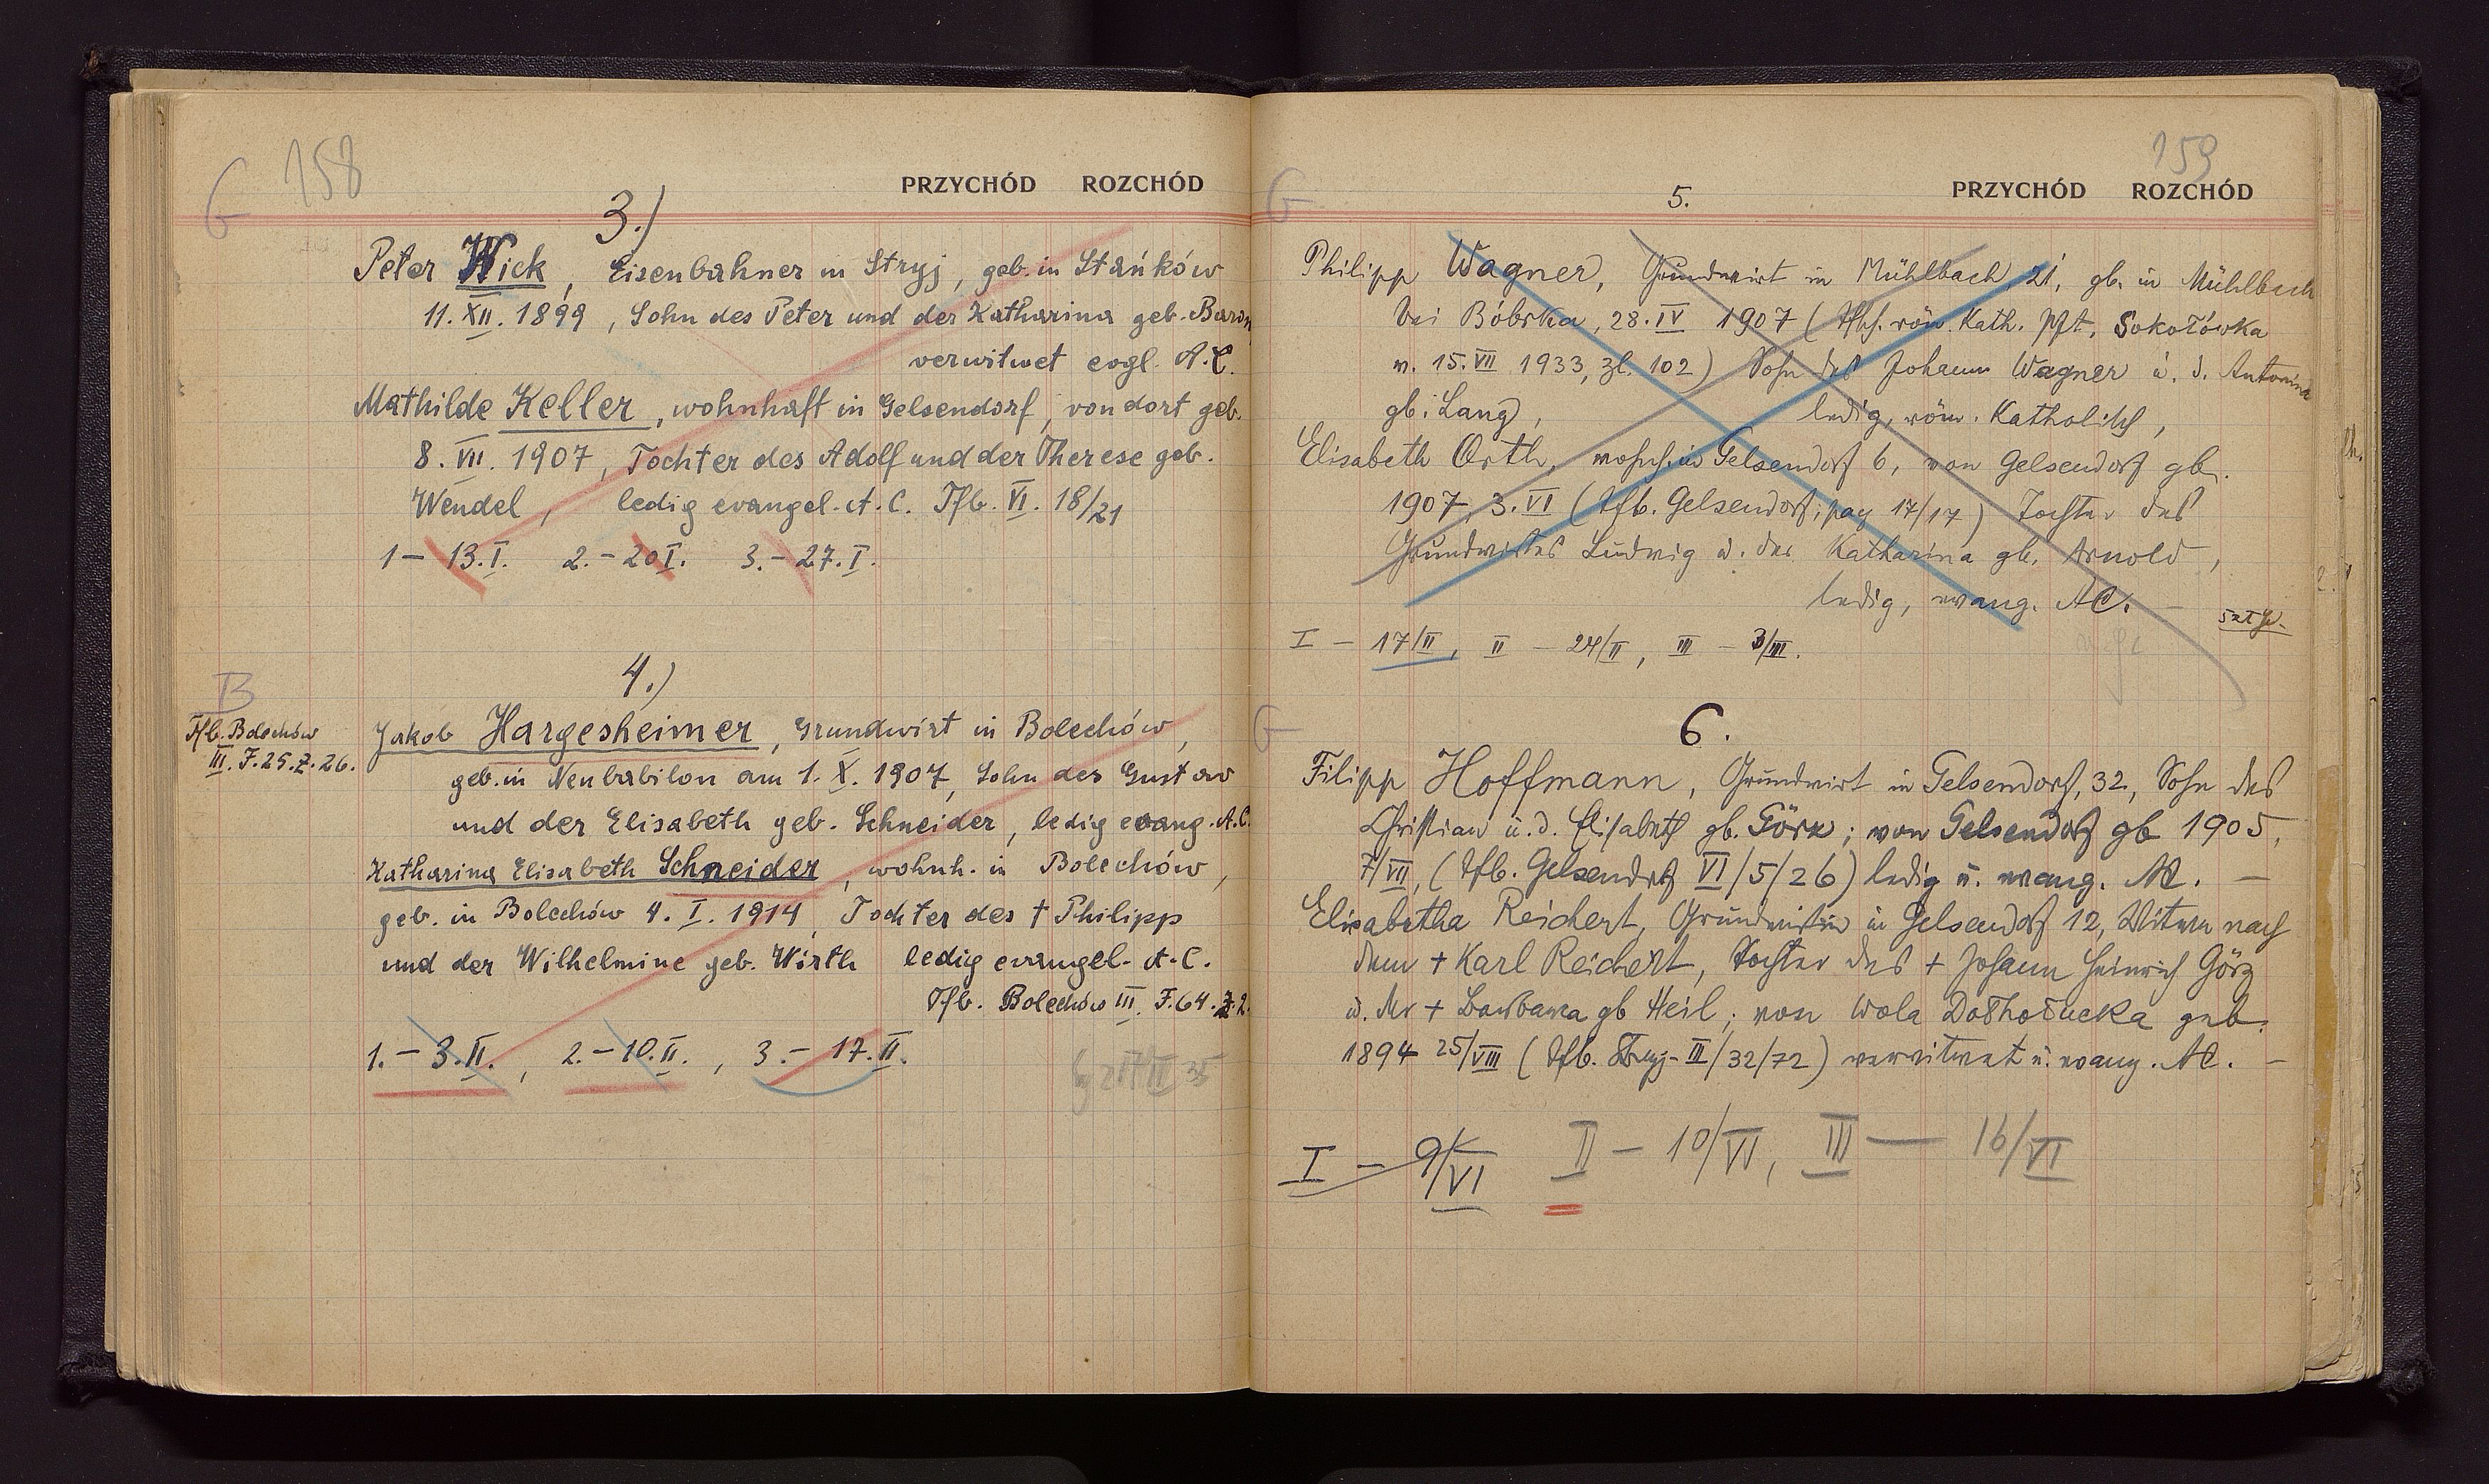 G 158
PRZYCHÓD ROZCHÓD
3.)
Peter Wick, Eisenbahner in Stryj, geb. in Stańków
11. XII. 1899, Sohn des Peter und der Katharina geb. Baron
verwitwet evgl. A.C.
Mathilde Keller, wohnhaft in Gelsendorf, von dort geb.
8. VII. 1907, Tochter des Adolf und der Therese geb.
Wendel, ledig evangel. A.C. Tfb. VI. 18/21
1 – 13. I. 2. – 20 I. 3. – 27. I.
4.)
B
Tfb. Bolechów
III. F. 25. Z. 26.
Jakob Hargesheimer, Grundwirt in Bolechów,
geb. in Neubabilon am 1. X. 1907, Sohn des Gustav
und der Elisabeth geb. Schneider, ledig evang. A.C.
Katharina Elisabeth Schneider, wohnh. in Bolechów,
geb. in Bolechów 4. I. 1914, Tochter des † Philipp
und der Wilhelmine geb. Wirth ledig evangel. A.C.
Tfb. Bolechów III. F. 64. Z. 2.
1. – 3. II., 2. – 10. II., 3. – 17. II.
G 159
PRZYCHÓD ROZCHÓD
5.
Philipp Wagner, Grundwirt in Mühlbach, 21, gb. in Mühlbach
bei Bóbrka, 28. IV 1907 (Tfs. röm. Kath. Pft. Sokołówka
v. 15. VII 1933, Zl. 102) Sohn des Johann Wagner u. d. Antonina
gb. Lang, ledig, röm. Katholisch,
Elisabeth Orth, wohnh. in Gelsendorf 6, von Gelsendorf gb.
1907, 3. VI (Tfb. Gelsendorf, pag 17/17) Tochter des
Grundwirtes Ludwig u. der Katharina gb. Arnold,
ledig, evang. AC. –
I – 17/II, II – 24/II, III – 3/III.
6.
G
Filipp Hoffmann, Grundwirt in Gelsendorf, 32, Sohn des
Christian u. d. Elisabeth gb. Görz; von Gelsendorf gb 1905,
7/VII, (Tfb. Gelsendorf VI/5/26) ledig u. evang. AC. –
Elisabetha Reichert, Grundwirtin in Gelsendorf 12, Witwe nach
dem + Karl Reichert, Tochter des + Johann Heinrich Görz
u. der + Barbara gb Heil; von Wola Dołhołucka geb.
1894 25/VIII (Tfb. Stryj – III/32/72) verwitwet u. evang. AC. –
I – 9/VI II – 10/VI, III – 16/VI